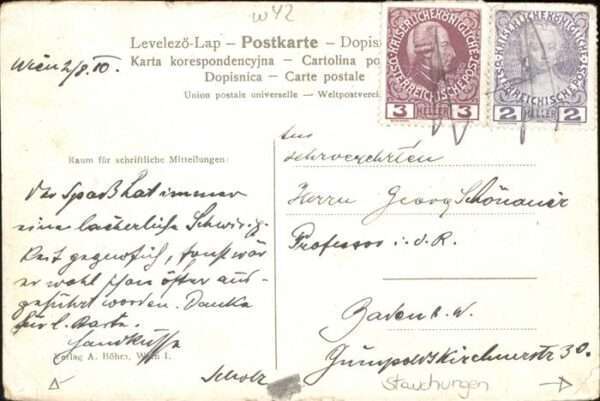 W42
Levelező-Lap – Postkarte – Dopis
Karta korespondencyjna – Cartolina po
Dopisnica – Carte postale
Union postale universelle – Weltpostverei
KAISERLICHE KÖNIGLICHE
ÖSTERREICHISCHE POST
3 HELLER 3
KAISERLICHE KÖNIGLICHE
ÖSTERREICHISCHE POST
2 HELLER 2
Wien 2/8. 10.
Raum für schriftliche Mitteilungen:
Der Spaß hat immer
eine lächerliche Schwierig-
keit gegen sich, sonst wär
er wohl schon öfter aus-
geführt worden. Danke
für l. Karte.
Handküsse
Scholz
Verlag A. Böhm, Wien I.
sehrverehrten
Herrn Georg Schönauer
Professor i. d. R.
Baden b. W.
Gumpoldskirchnerstr 30.
Stauchungen